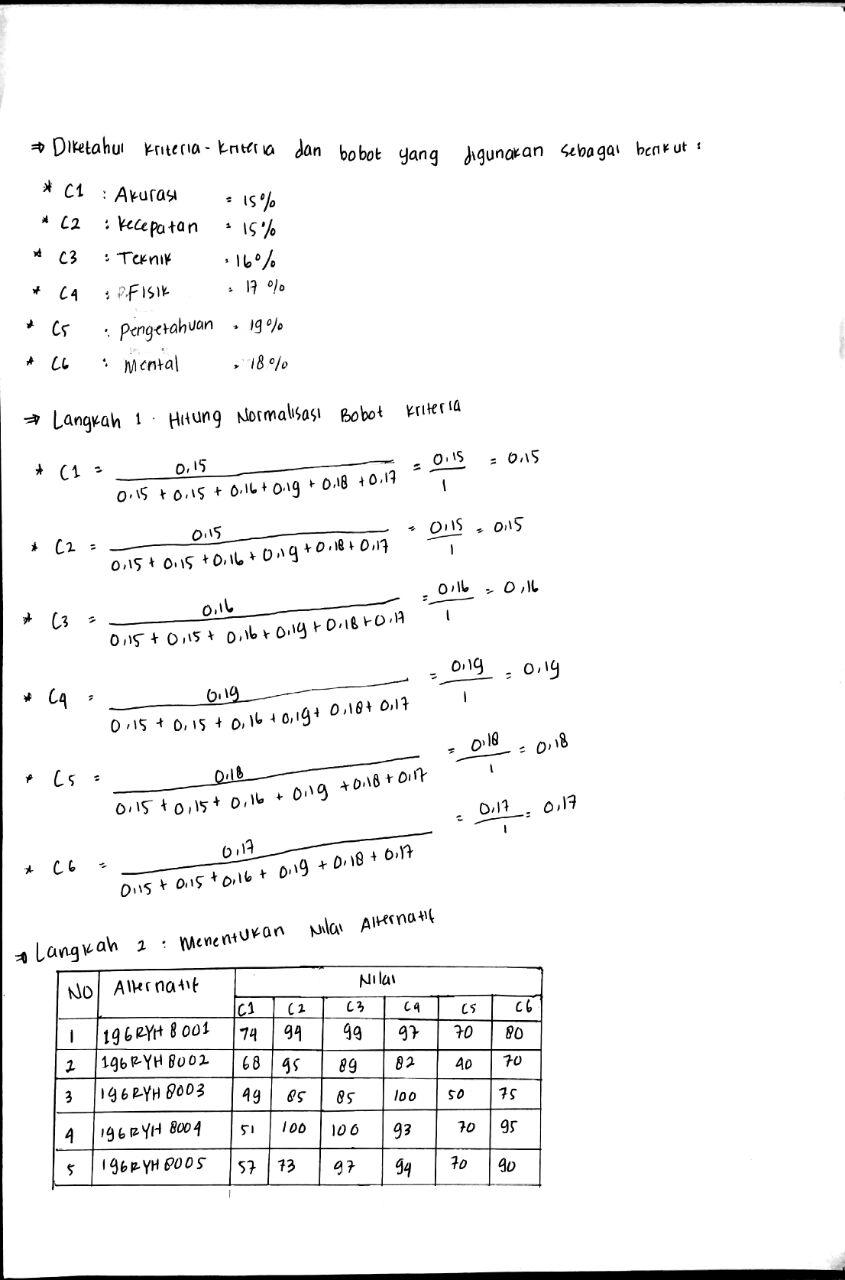 ⇒ Diketahui kriteria-kriteria dan bobot yang digunakan sebagai berikut :
* C1 : Akurasi = 15%
* C2 : Kecepatan = 15%
* C3 : Teknik = 16%
* C4 : Fisik = 17%
* C5 : Pengetahuan = 19%
* C6 : Mental = 18%
⇒ Langkah 1 : Hitung Normalisasi Bobot Kriteria
* C1 = 0,15 / 0,15 + 0,15 + 0,16 + 0,19 + 0,18 + 0,17 = 0,15 / 1 = 0,15
* C2 = 0,15 / 0,15 + 0,15 + 0,16 + 0,19 + 0,18 + 0,17 = 0,15 / 1 = 0,15
* C3 = 0,16 / 0,15 + 0,15 + 0,16 + 0,19 + 0,18 + 0,17 = 0,16 / 1 = 0,16
* C4 = 0,19 / 0,15 + 0,15 + 0,16 + 0,19 + 0,18 + 0,17 = 0,19 / 1 = 0,19
* C5 = 0,18 / 0,15 + 0,15 + 0,16 + 0,19 + 0,18 + 0,17 = 0,18 / 1 = 0,18
* C6 = 0,17 / 0,15 + 0,15 + 0,16 + 0,19 + 0,18 + 0,17 = 0,17 / 1 = 0,17
⇒ Langkah 2 : Menentukan Nilai Alternatif
No Alternatif Nilai
C1 C2 C3 C4 C5 C6
1 196RYH8001 74 94 99 97 70 80
2 196RYH8002 68 95 89 82 40 70
3 196RYH8003 49 85 85 100 50 75
4 196RYH8004 51 100 100 93 70 95
5 196RYH8005 57 73 97 94 70 90